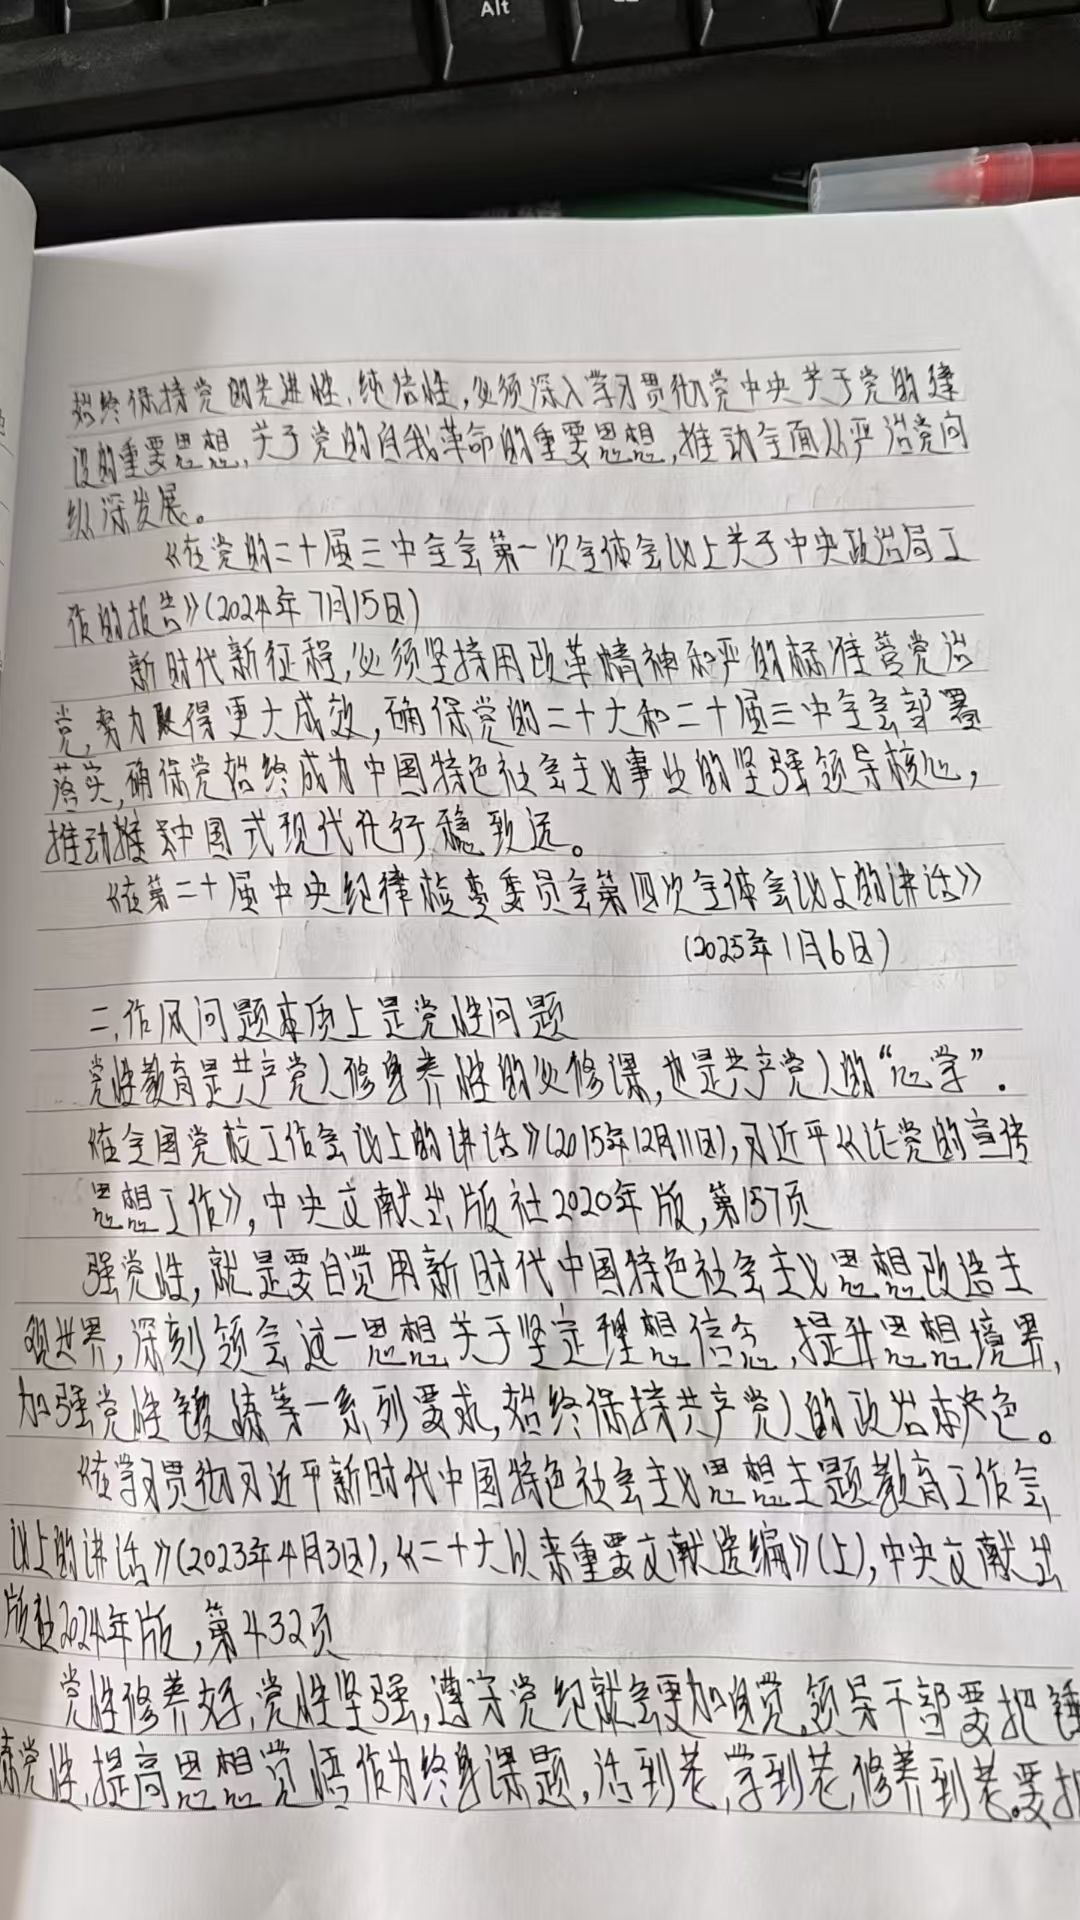 Alt
始终保持党的先进性、纯洁性,必须深入学习贯彻党中央关于党的建
设的重要思想,关于党的自我革命的重要思想,推动全面从严治党向
纵深发展。
《在党的二十届三中全会第一次全体会议上关于中央政治局工
作的报告》(2024年7月15日)
新时代新征程,必须坚持用改革精神和严的标准管党治
党,努力取得更大成效,确保党的二十大和二十届三中全会部署
落实,确保党始终成为中国特色社会主义事业的坚强领导核心,
推动中国式现代化行稳致远。
《在第二十届中央纪律检查委员会第四次全体会议上的讲话》
(2025年1月6日)
二、作风问题本质上是党性问题
党性教育是共产党人修身养性的必修课,也是共产党人的“心学”.
《在全国党校工作会议上的讲话》(2015年12月11日),习近平《论党的宣传
思想工作》,中央文献出版社2020年版,第157页
强党性,就是要自觉用新时代中国特色社会主义思想改造主
观世界,深刻领会这一思想关于坚定理想信念,提升思想境界,
加强党性锻炼等一系列要求,始终保持共产党人的政治本色。
《在学习贯彻习近平新时代中国特色社会主义思想主题教育工作会
议上的讲话》(2023年4月3日),《二十大以来重要文献选编》(上),中央文献出
版社2024年版,第432页
党性修养好,党性坚强,遵守党纪就会更加自觉,领导干部要把锤
炼党性,提高思想觉悟作为终身课题,活到老,学到老,修养到老。要把